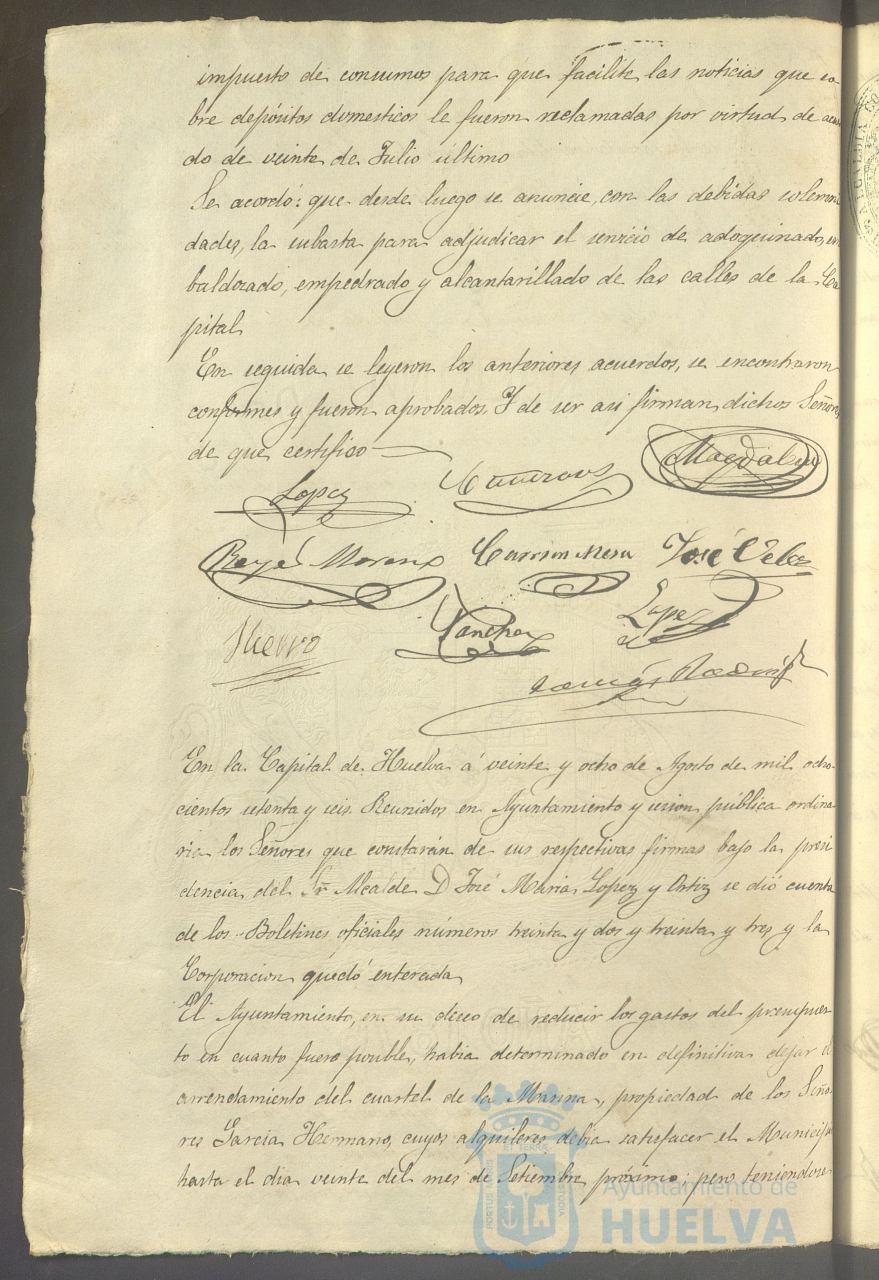 impuesto de consumos para que facilite las noticias que so-
bre depósitos domesticos le fueron reclamadas por virtud de acuer
do de veinte de Julio último
Se acordó: que desde luego se anuncie, con las debidas solemni
dades, la subasta para adjudicar el servicio de adoquinado, em
baldozado, empedrado y alcantarillado de las calles de la Ca
pital.
En seguida se leyeron los anteriores acuerdos, se encontraron
conformes y fueron aprobados. Y de ser asi firman dichos Señores
de que certifico
Lopez
Magdalena
Reyes Moreno Carrion Mesa José Velez
Hierro Sanchez Lopez
Tomás Rodrig
En la Capital de Huelva á veinte y ocho de Agosto de mil ocho-
cientos setenta y seis. Reunidos en Ayuntamiento y sesion pública ordina
ria los Señores que constarán de sus respectivas firmas bajo la presi
dencia del Sr. Alcalde D José Maria Lopez y Ortiz se dió cuenta
de los Boletines oficiales números treinta y dos y treinta y tres y la
Corporacion quedó enterada
El Ayuntamiento, en su deseo de reducir los gastos del presupues
to en cuanto fuere posible, habia determinado en definitiva dejar el
arrendamiento del cuartel de la Marina, propiedad de los Seño
res Garcia Hermano, cuyos alquileres debia satisfacer el Municipio
hasta el dia veinte del mes de Setiembre próximo; pero teniendose
Ayuntamiento de
HUELVA